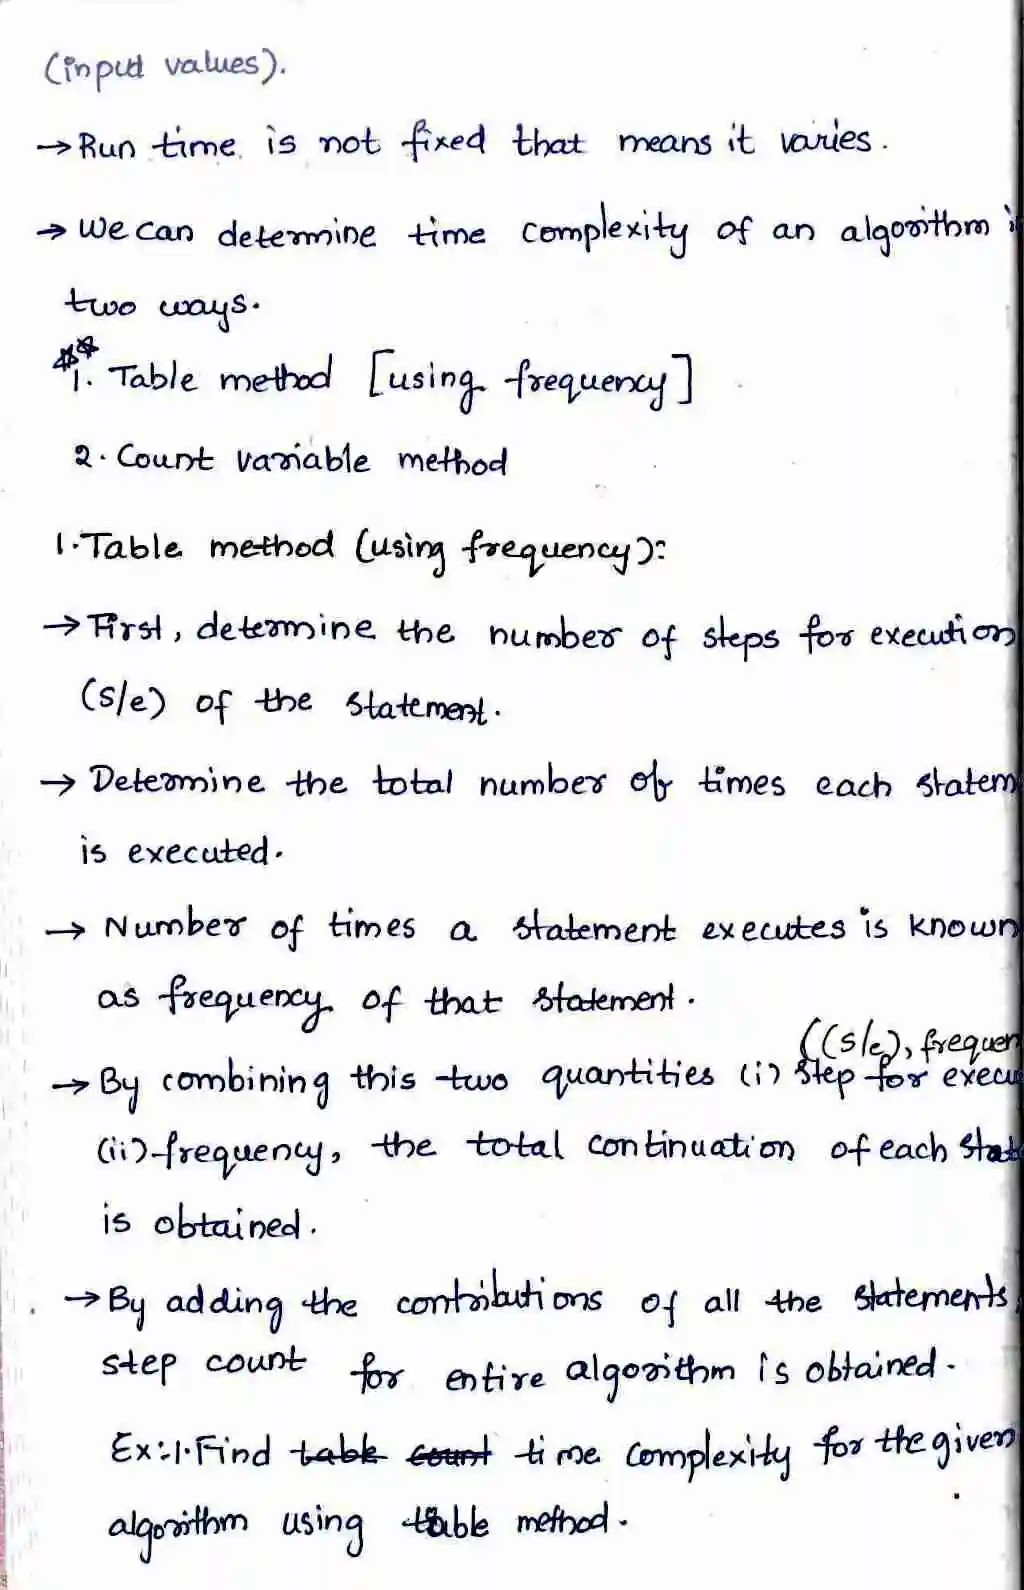 (input values).
→ Run time is not fixed that means it varies.
→ We can determine time complexity of an algorithm i
two ways.
** 1. Table method [using frequency]
2. Count variable method
1. Table method (using frequency):
→ First, determine the number of steps for execution
(s/e) of the statement.
→ Determine the total number of times each statem
is executed.
→ Number of times a statement executes is known
as frequency of that statement.
((s/e), frequen
→ By combining this two quantities (i) step for execu
(ii) frequency, the total continuation of each stat
is obtained.
→ By adding the contributions of all the statements,
step count for entire algorithm is obtained.
Ex:1. Find table count time complexity for the given
algorithm using table method.